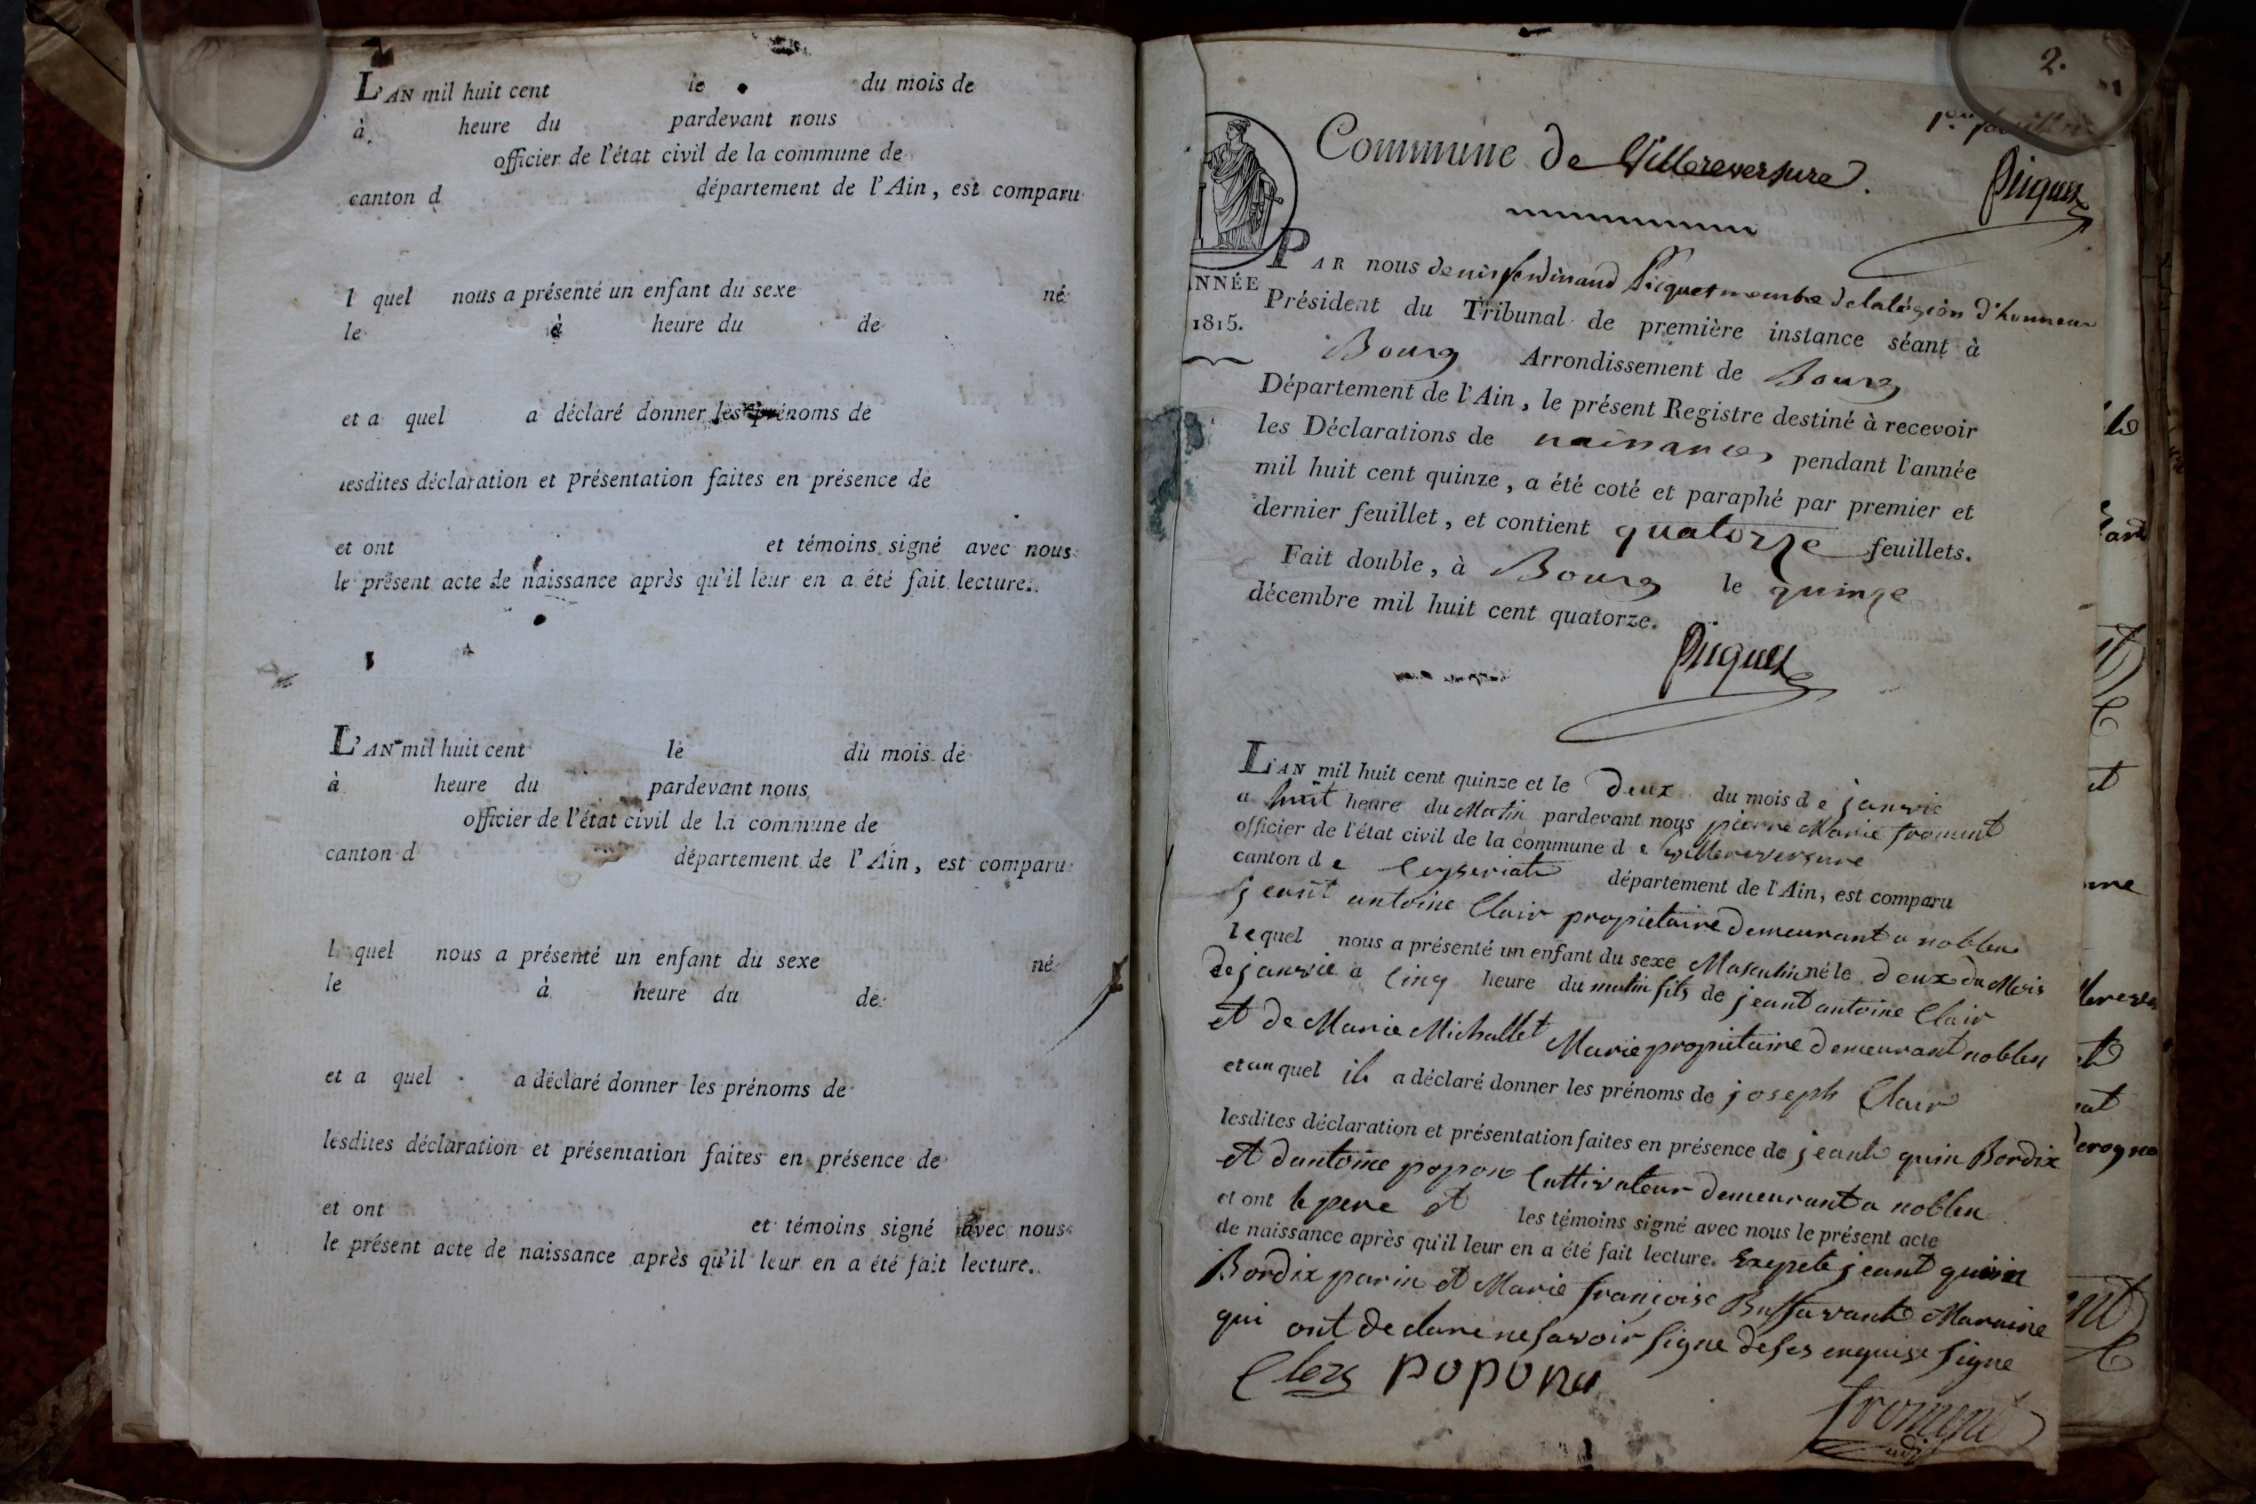 L'AN mil huit cent le du mois de
à heure du pardevant nous
officier de l'état civil de la commune de
canton d département de l'Ain, est comparu
l quel nous a présenté un enfant du sexe né
le à heure du de
et a quel a déclaré donner les prénoms de
lesdites déclaration et présentation faites en présence de
et ont et témoins signé avec nous
le présent acte de naissance après qu'il leur en a été fait lecture.
L'AN mil huit cent le du mois de
à heure du pardevant nous
officier de l'état civil de la commune de
canton d département de l'Ain, est comparu
l quel nous a présenté un enfant du sexe né
le à heure du de
et a quel a déclaré donner les prénoms de
lesdites déclaration et présentation faites en présence de
et ont et témoins signé avec nous
le présent acte de naissance après qu'il leur en a été fait lecture.
2.
1er
Commune de Villereversure.
Picquet
ANNÉE
1815.
PAR nous denis ferdinand Picquet membre de la légion d'honneur
Président du Tribunal de première instance séant à
Bourg Arrondissement de Bourg
Département de l'Ain, le présent Registre destiné à recevoir
les Déclarations de naissances pendant l'année
mil huit cent quinze, a été coté et paraphé par premier et
dernier feuillet, et contient quatorze feuillets.
Fait double, à Bourg le quinze
décembre mil huit cent quatorze.
Picquet
L'AN mil huit cent quinze et le deux du mois de janvie
a huit heure du Matin pardevant nous pierre Marie froment
officier de l'état civil de la commune de villereversure
canton de Ceyseriat département de l'Ain, est comparu
jeant antoine Clair propietaire demeurant a noblen
lequel nous a présenté un enfant du sexe Masculin né le deux du Mois
de janvie a Cinq heure du matin fils de jeant antoine Clair
et de Marie Michallet Marie propietaire demeurant noblen
et au quel il a déclaré donner les prénoms de joseph Clair
lesdites déclaration et présentation faites en présence de jeant quin Bordix
et dantoine popon Cultivateur demeurant a noblen
et ont le pere et les témoins signé avec nous le présent acte
de naissance après qu'il leur en a été fait lecture. Exepete jeant quin
Bordix parin et Marie françoise Buffavant Maraine
qui ont declare ne savoir signe de ses enquise signe
Clerc popon
froment